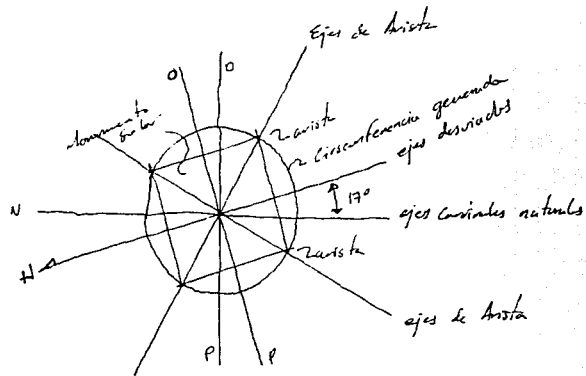 Ejes de Arista
O
O
Monumento
arista
Circunferencia generada
ejes desviados
17°
N
ejes cardinales naturales
N
arista
ejes de Arista
P
P